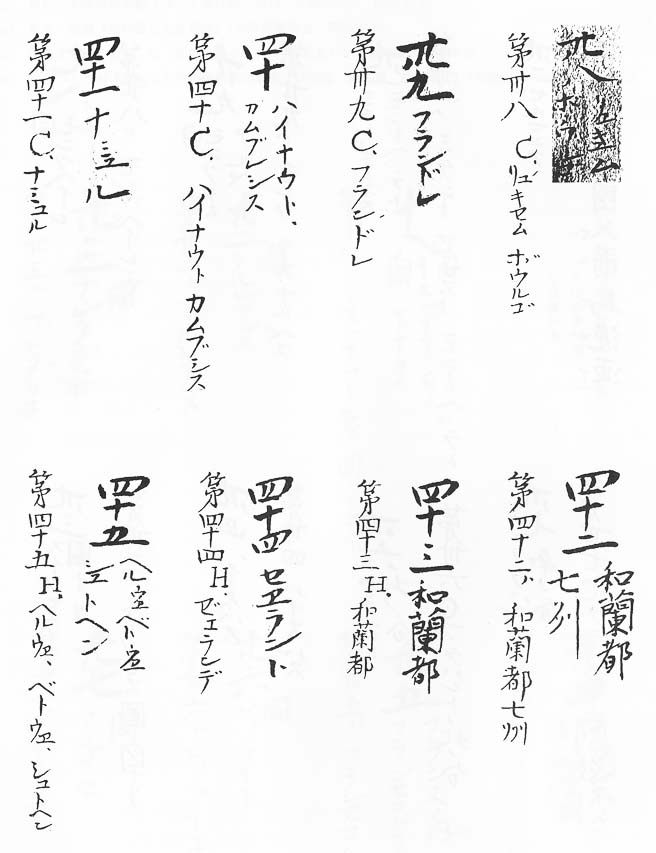 卅八
第卅八 C. リュキセム ボウルゴ
卅九 フランドル
第卅九 C. フランドレ
四十 ハイナウド、
カムブレシス
第四十 C. ハイナウト カムブシス
四十一 ナミュル
第四十一 C. ナミュル
四十二 和蘭都
七州
第四十二、 和蘭都七州
四十三 和蘭都
第四十三 H. 和蘭都
四十四 セヱラント
第四十四 H. ゼエランデ
四十五 ヘルヱベトヱ
シュトヘン
第四十五 H. ヘルウェ、ベトウェ、シュトヘン